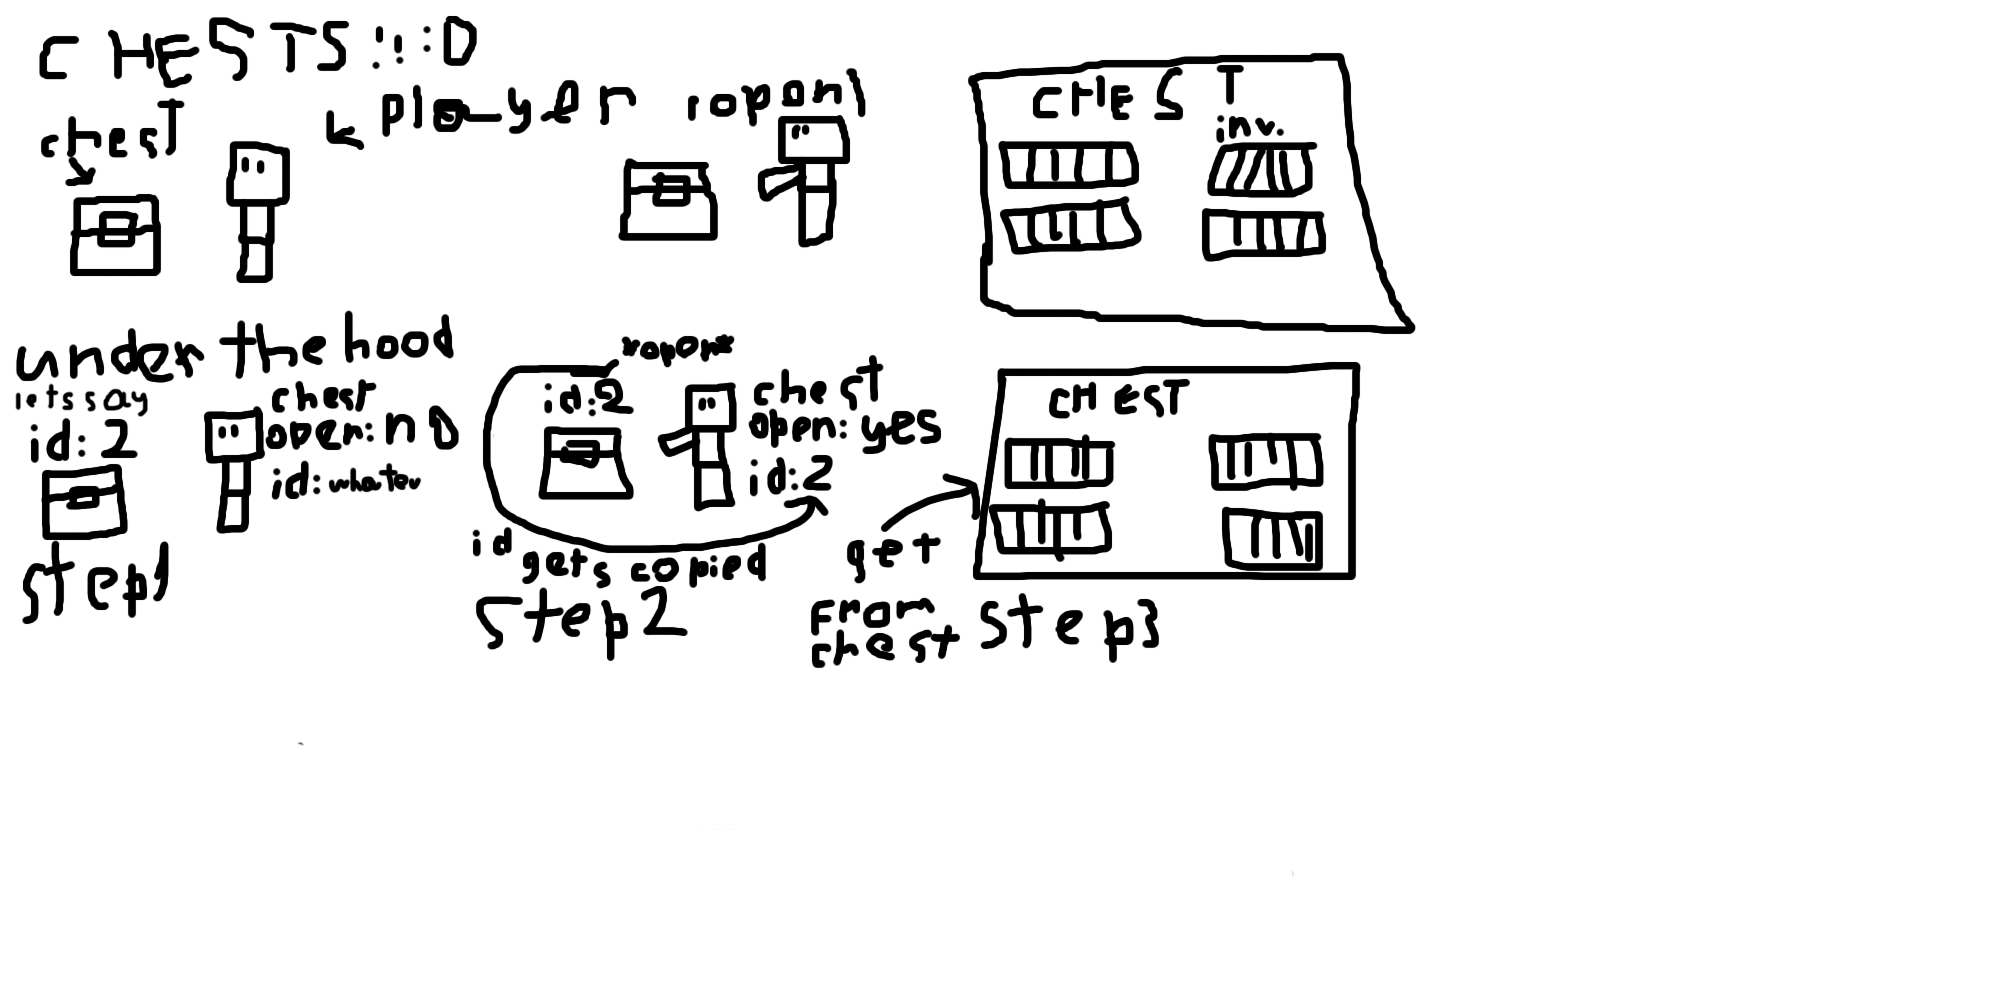 CHESTS!!:D
chest
player
ropon!
CHEST
inv.
under the hood
lets say
id:2
chest
open:no
id:whatev
step1
*opon*
id:2
chest
open:yes
id:2
id gets copied
step2
get
From
chest
CHEST
step3